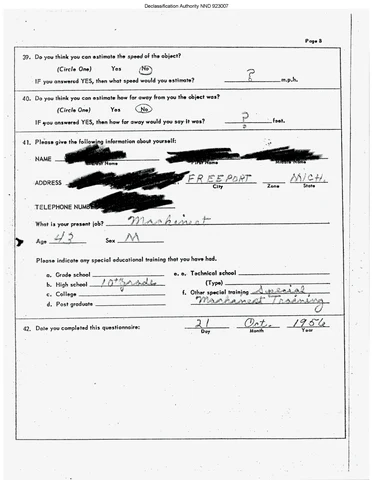 Declassification Authority NND 923007
Page 8
39. Do you think you can estimate the speed of the object?
(Circle One) Yes No
IF you answered YES, then what speed would you estimate? ? m.p.h.
40. Do you think you can estimate how far away from you the object was?
(Circle One) Yes No
IF you answered YES, then how far away would you say it was? ? feet.
41. Please give the following information about yourself:
NAME
Last Name First Name Middle Name
ADDRESS FREEPORT MICH.
City Zone State
TELEPHONE NUMBER
What is your present job? Machinest
Age 43 Sex M
Please indicate any special educational training that you have had.
a. Grade school e. Technical school
b. High school 10th grade (Type)
c. College f. Other special training Special
d. Post graduate Machanest Training
42. Date you completed this questionnaire: 21 Oct. 1956
Day Month Year